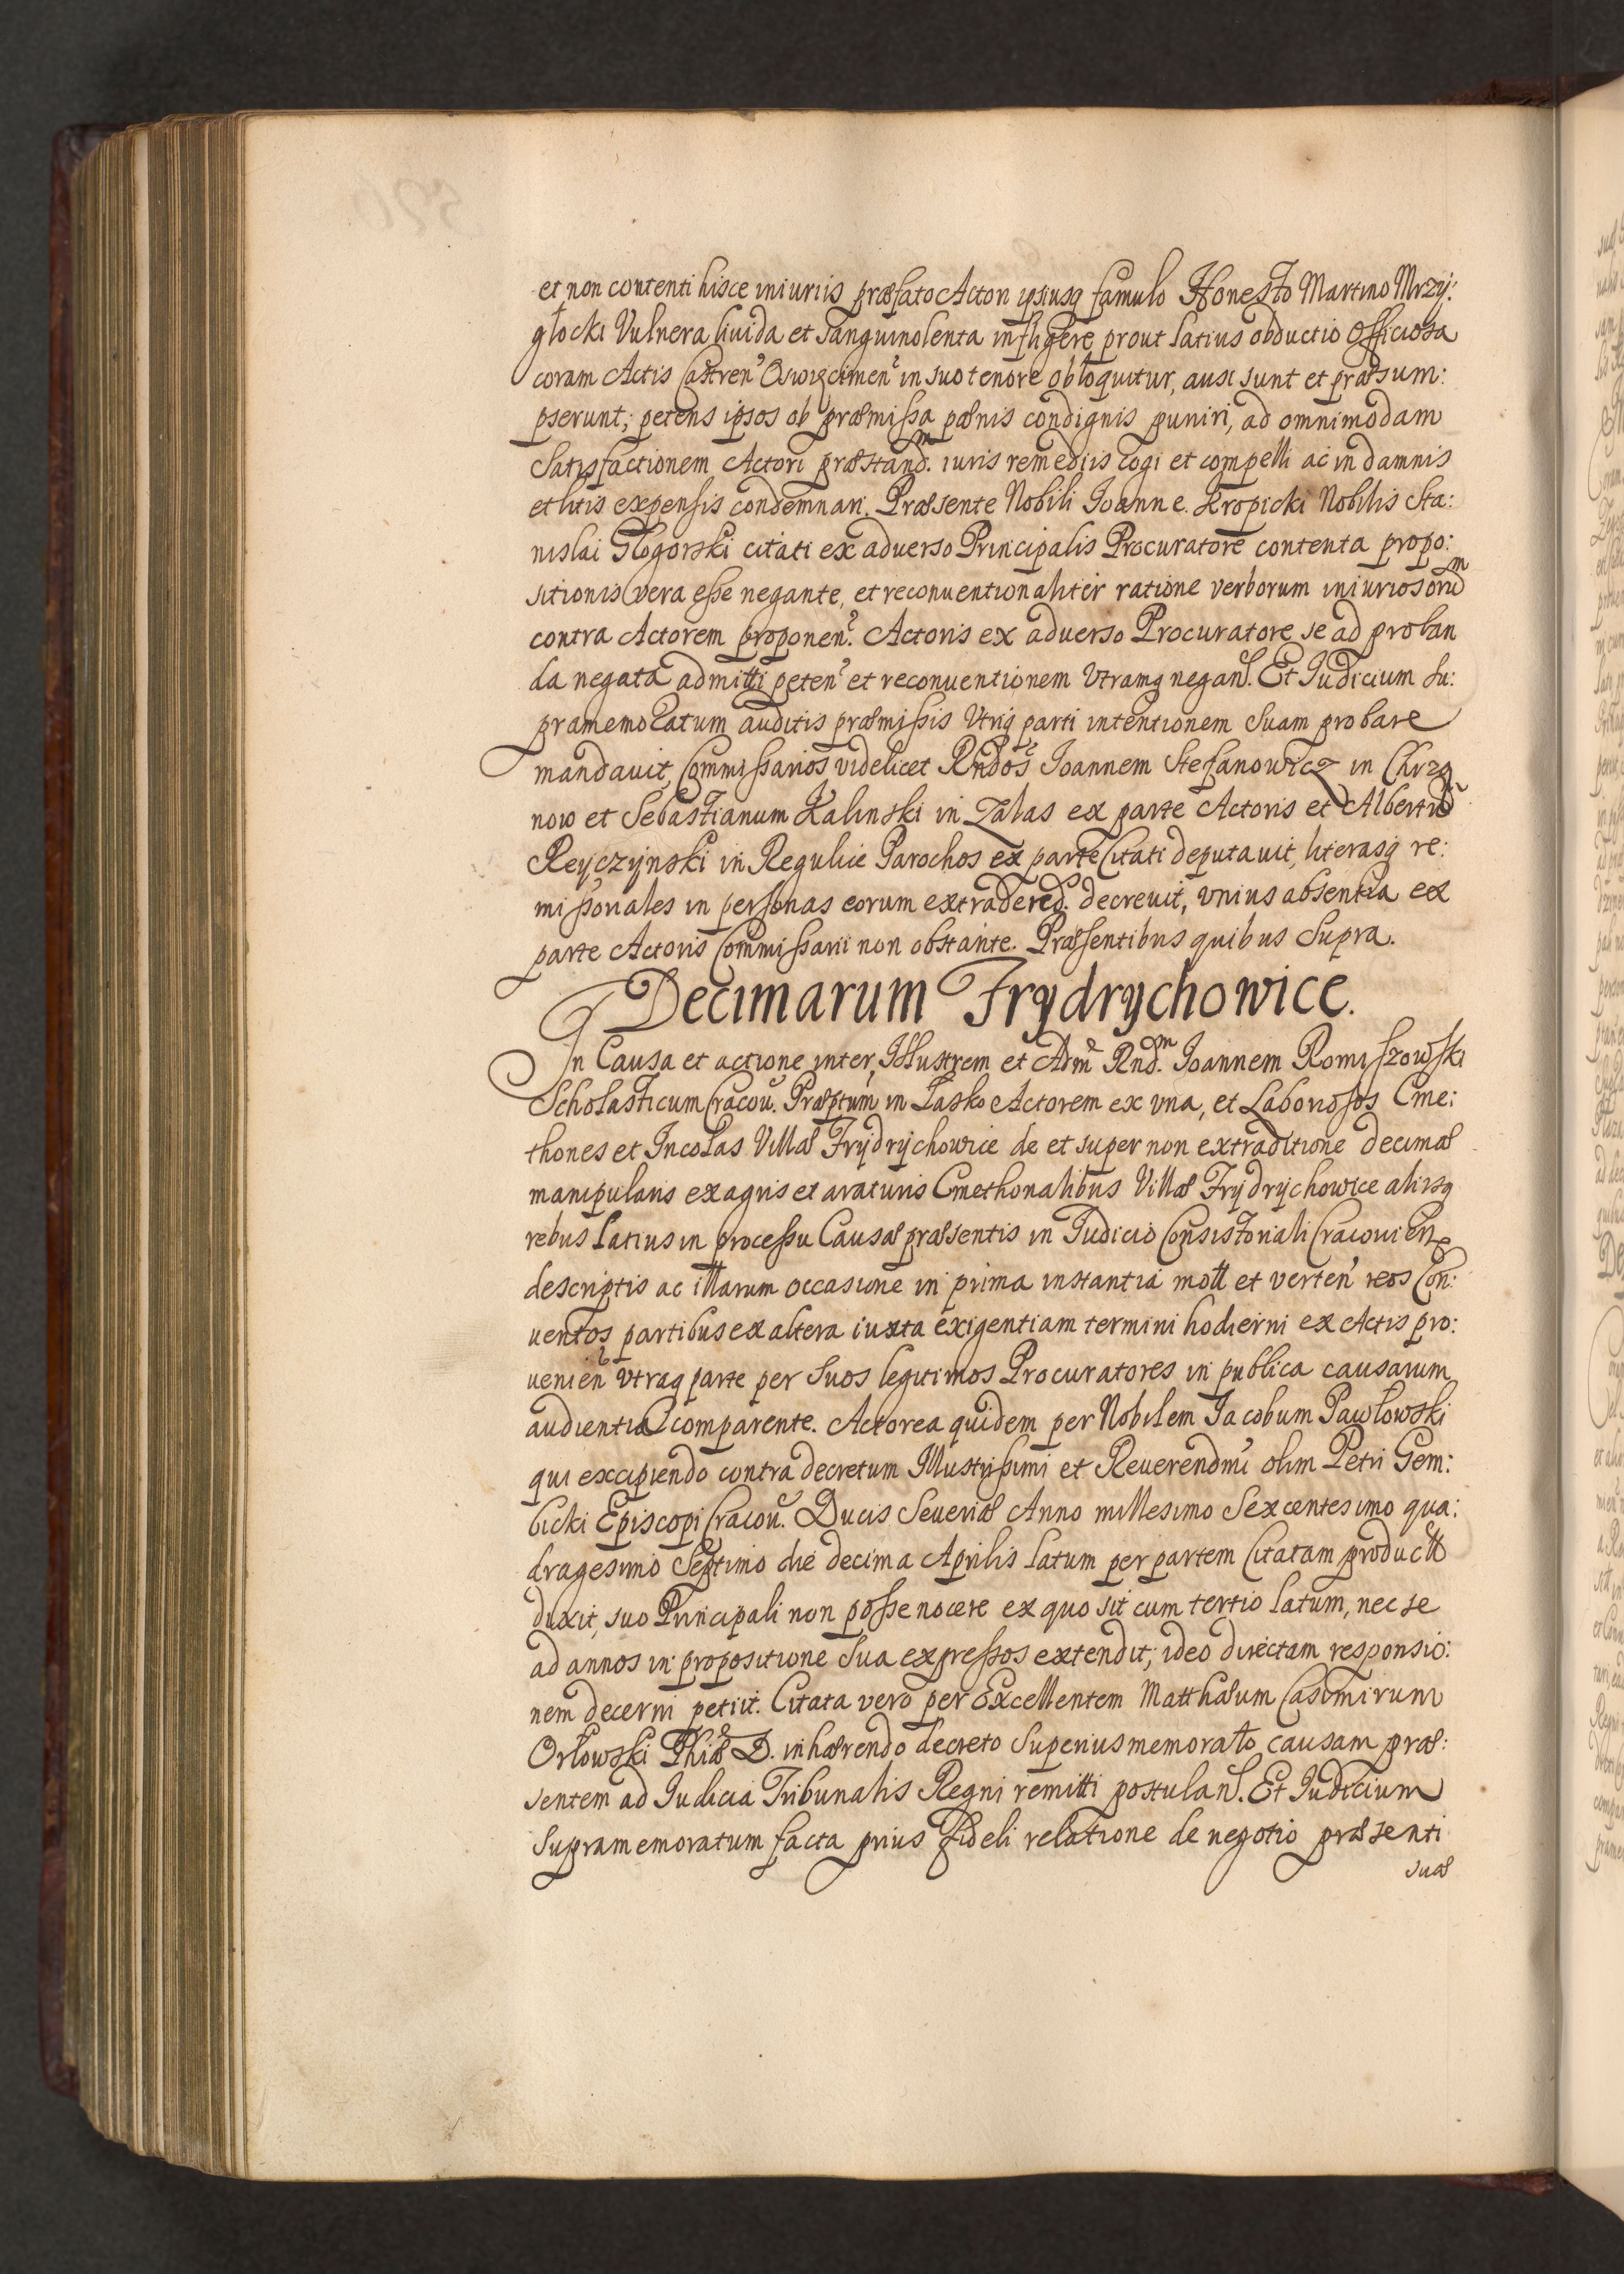 et non contenti hisce iniuriis præfato Actori ipsiusq famulo Honesto Martino Mrzy:
głocki Vulnera liuida et sanguinolenta infligere prout latius obductio officiosa
coram Actis Castren Oswięcimen in suo tenore obloquitur, ausi sunt et præsum:
pserunt; petens ipsos ob præmissa pænis condignis puniri, ad omnimodam
Satisfactionem Actori præstand. iuris remediis cogi et compelli ac in damnis
et litis expensis condemnari. Præsente Nobili Ioanne Kropicki Nobilis Sta:
nislai Głogorski citati ex aduerso Principalis Procuratore contenta propo:
sitionis vera esse negante, et reconuentionaliter ratione verborum iniuriosorum
contra Actorem proponen. Actoris ex aduerso Procuratore se ad proban
da negata admitti peten et reconuentionem Vtramq negan. Et Iudicium su:
pramemoratum auditis præmissis Vtriq parti intentionem suam probare
mandauit, Commissarios videlicet Rndos Ioannem Stefanowicz in Chrza
now et Sebastianum Kalinski in Zalas ex parte Actoris et Albertum
Reyczynski in Regulice Parochos ex parte Citati deputauit, literasq re:
missoriales in personas eorum extradered. decreuit, vnius absentia ex
parte Actoris Commissarii non obstante. Præsentibus quibus Supra.
Decimarum Frydrychowice.
In Causa et actione inter Illustrem et Adm Rnd.m Ioannem Romiszowski
Scholasticum Cracou. Præptum in Łasko Actorem ex vna, et Laboriosos Cme:
thones et Incolas Villæ Frydrychowice de et super non extraditione decimæ
manipularis ex agris et araturis Cmethonalibus Villæ Frydrychowice aliisq
rebus latius in processu Causæ præsentis in Iudicio Consistoriali Cracouien
descriptis ac illarum occasione in prima instantia mott et verten reos Con:
uentos partibus ex altera iuxta exigentiam termini hodierni ex Actis pro:
uenien vtraq parte per suos legitimos Procuratores in publica causarum
audientia comparente. Actorea quidem per Nobilem Iacobum Pawłowski
qui excipiendo contra decretum Illustrissimi et Reuerendmi olim Petri Gem:
bicki Episcopi Cracou. Ducis Seueriæ Anno millesimo Sexcentesimo qua:
dragesimo Septimo die decima Aprilis latum per partem Citatam product
duxit, suo Principali non posse nocere ex quo sit cum tertio latum, nec se
ad annos in propositione sua expressos extendit; ideo directam responsio:
nem decerni petiit. Citata vero per Excellentem Matthæum Casimirum
Orłowski Phiæ D. inhærendo decreto superius memorato causam præ:
sentem ad Iudicia Tribunalis Regni remitti postulan. Et Iudicium
supramemoratum facta prius fideli relatione de negotio præsenti
suæ